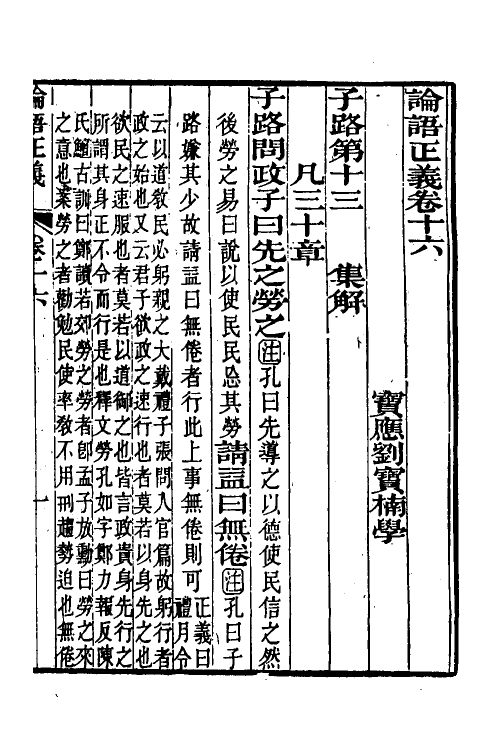 論語正義卷十六
寶應劉寶楠學
子路第十三　集解
凡三十章
子路問政子曰先之勞之注孔曰先導之以德使民信之然
後勞之易曰說以使民民忘其勞請益曰無倦注孔曰子
路嫌其少故請益曰無倦者行此上事無倦則可正義曰禮月令
云以道敎民必躬親之大戴禮子張問入官篇故躬行者
政之始也又云君子欲政之速行也者莫若以身先之也
欲民之速服也者莫若以道御之也皆言政貴身先行之
所謂其身正不令而行是也釋文勞孔如字鄭力報反陳
氏鱣古訓曰鄭讀若郊勞之勞者卽孟子放勳曰勞之來
之意也案勞之者勸勉民使率敎不用刑趨勢迫也無倦
論語正義　卷十六　一